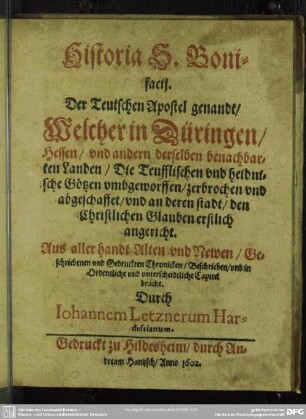 Historia S. Boni-
facij.
Der Teutschen Apostel genandt/
Welcher in Düringen/
Hessen/ vnd andern derselben benachbar-
ten Landen/ Die Teufflischen vnd heidni-
sche Götzen vmbgeworffen/ zerbrochen vnd
abgeschaffet/ vnd an deren stadt/ den
Christlichen Glauben erstlich
angericht.
Aus aller handt Alten vnd Newen/ Ge-
schriebenen vnd Gedruckten Chronicken/ Beschrieben/ vnd in
Ordentliche vnd vnterscheidtliche Capitel
bracht.
Durch
Iohannem Letznerum Har-
dessianum.
Gedruckt zu Hildesheim/ durch An-
dream Hantzsch/ Anno 1602.